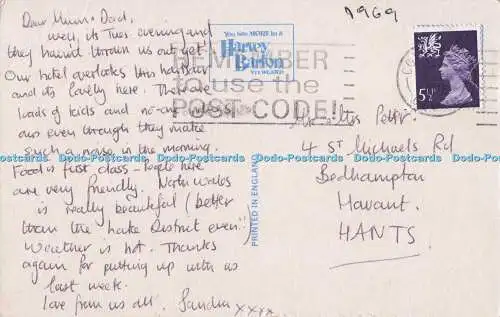 Dear Mum & Dad,
Well, its Tues evening and
they havn't thrown us out yet!
Our hotel overlooks the harbour
and its lovely here. There are
loads of kids and no-one minds
ours even through they make
such a noise in the morning.
Food is first class - People here
are very friendly. North Wales
is really beautiful (better
than the Lake District even!!)
Weather is hot. Thanks
again for putting up with us
last week.
Love from us all. Sandra xxxx
A969
You See MORE in a
Harvey
Barton
VIEWCARD
REMEMBER
to use the
POST CODE!
5½P
4 ST Michaels Rd
Bedhampton
Havant.
HANTS.
PRINTED IN ENGLAND
Do-Postcards Do-Postcards Do-Postcards Do-Postcards Do-Postcards Do-Postcards